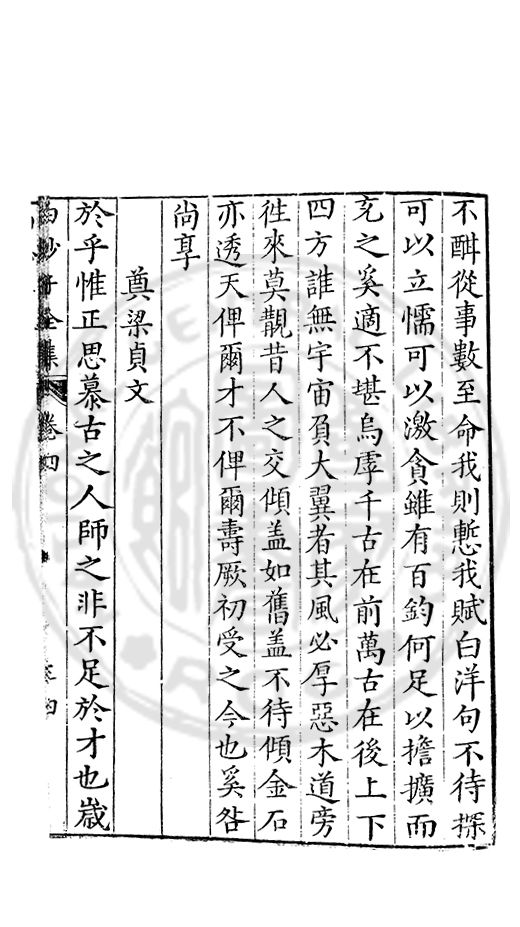 不酣從事數至命我則慙我賦白洋句不待探
可以立懦可以激貪雖有百鈞何足以擔擴而
充之奚適不堪烏虖千古在前萬古在後上下
四方誰無宇宙負大翼者其風必厚惡木道旁
徃來莫覯昔人之交傾盖如舊盖不待傾金石
亦透天俾爾才不俾爾壽厥初受之今也奚咎
尚享
奠梁貞文
於乎惟正思慕古之人師之非不足於才也歲
白沙子全集 卷四